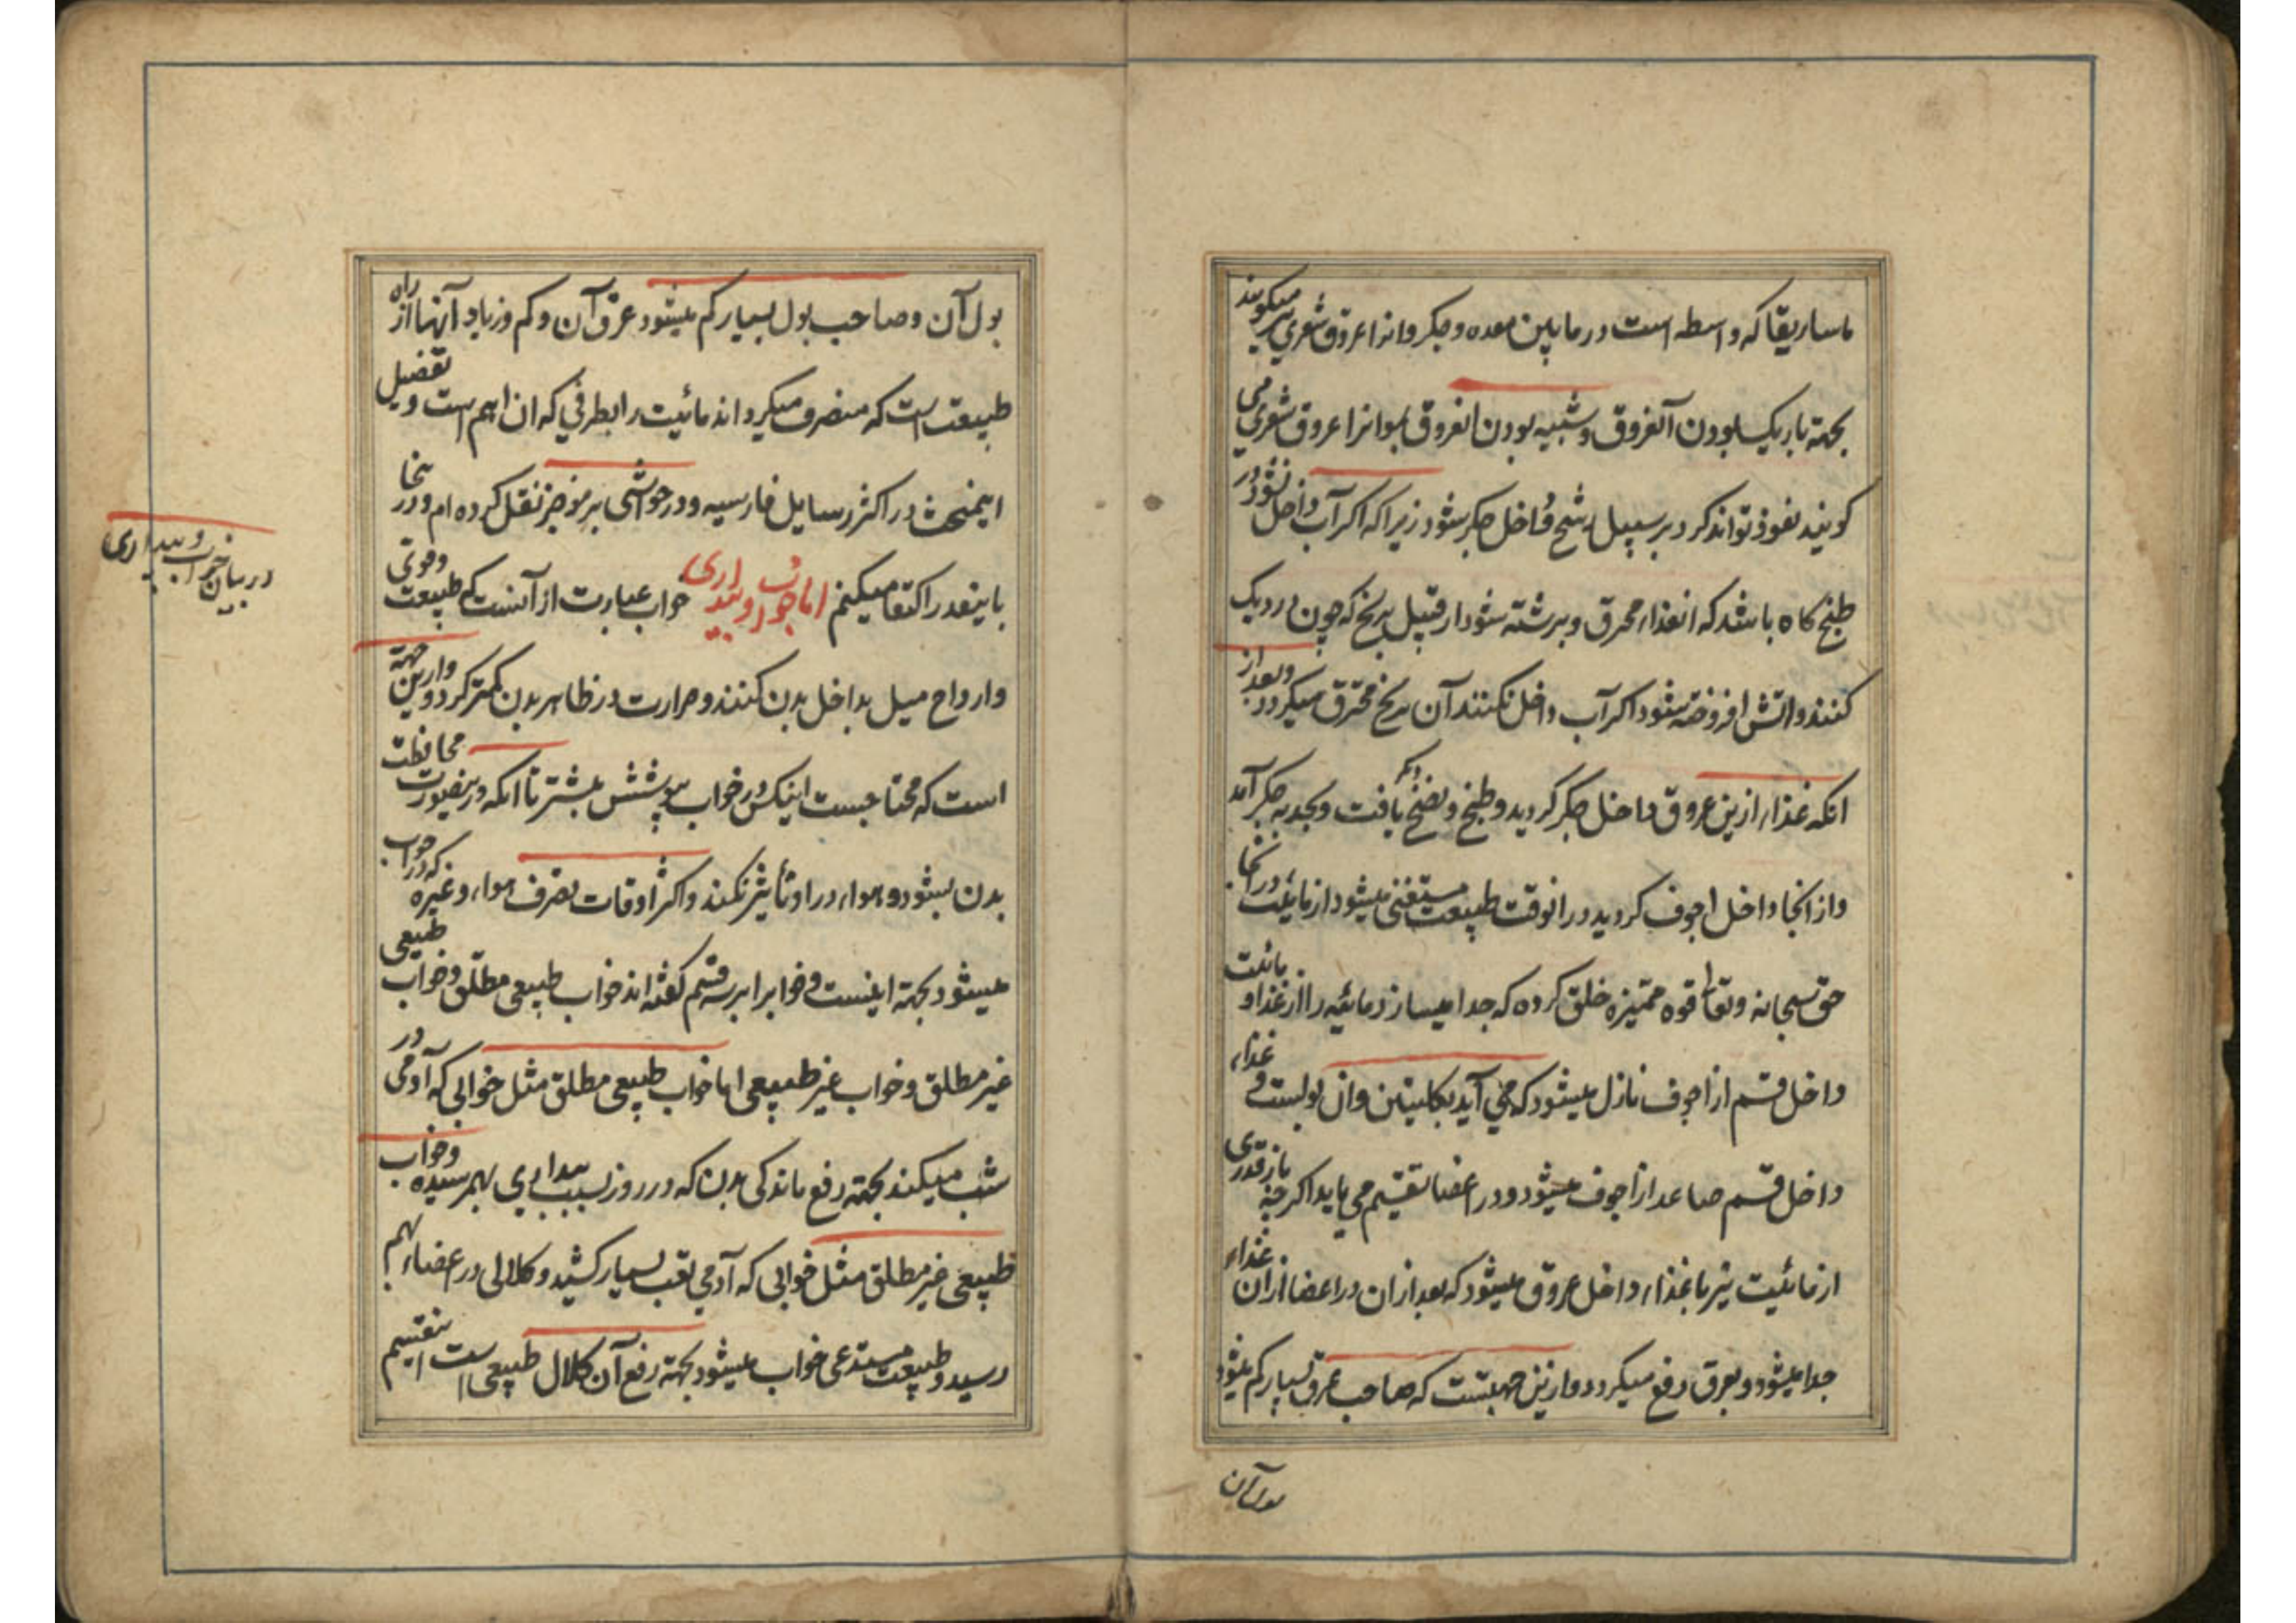 ماساریقا که واسطه است در مابین معده و جکر و انرا عروق شعری نیز میکویند
بجهة باریک بودن آنعروق و شبیه بودن انعروق بمو انرا عروق شعری می
کویند نفوذ تواند کرد و بر سبیل رشح داخل جکر شود زیرا که اکر آب داخل نشود در
طبخ کاه باشد که انغذا محرق و برشته شود از قبیل برنج که چون در دیک
کنند و اتش افروخته شود اکر آب داخل نکنند آن برنج محترق میکردد و بعد از
انکه غذاء ازین عروق داخل جکر کردید و طبخ و نضج یافت و بجدبه جکر آمد
و از انجا داخل اجوف کردید در انوقت طبیعت مستغنی میشود از مائیت در انجا
حق سبحانه و تعا قوه ممیزه خلق کرده که جدا میسازد مائیه را از غذا و مائیت
داخل قسم از اجوف نازل میشود که می آید بکلیتین و ان بولیست و غذاء
داخل قسم صاعد از اجوف میشود و در اعضا تقسیم می یابد اکر چه باز قدری
از مائیت نیز با غذاء داخل عروق میشود که بعد از ان در اعضا از ان غذاء
جدا میشود و بعرق دفع میکردد و ازین جهتست که صاحب عرق بسیار کم میشود
بول آن
بول آن و صاحب بول بسیار کم میشود عرق آن و کم و زیاد آنها از راه
طبیعت است که منصرف میکرداند مائیت را بطرفی که ان اهم است و تفضیل
اینمبحث در اکثر رسایل فارسیه و در حواشی بر موجز نقل کرده ام و در ینجا
باینقدر اکتفا میکنم اما خواب و بیداری خواب عبارت از آنست که طبیعت و قوی
و ارواح میل بداخل بدن کنند و حرارت در ظاهر بدن کمتر کردد و ازین جهة
است که محتاجست اینکس در خواب بپوشش بیشتر تا انکه درینصورت محافظت
بدن بشود و هواء در او تأثیر نکند و اکثر اوقات تصرف هواء و غیره که در خواب
میشود بجهة اینست و خوابرا بر سه قسم کفته اند خواب طبیعی مطلق و خواب طبیعی
غیر مطلق و خواب غیر طبیعی اما خواب طبیعی مطلق مثل خوابی که آدمی در
شب میکند بجهة رفع ماندکی بدن که در روز بسبب بیداری بهمرسیده و خواب
طبیعی غیر مطلق مثل خوابی که آدمی تعب بسیار کشید و کلالی در اعضاء بهم
رسید و طبیعت مستدعی خواب میشود بجهة رفع آن کلال طبیعی است اینقسم
در بیان خواب و بیداری